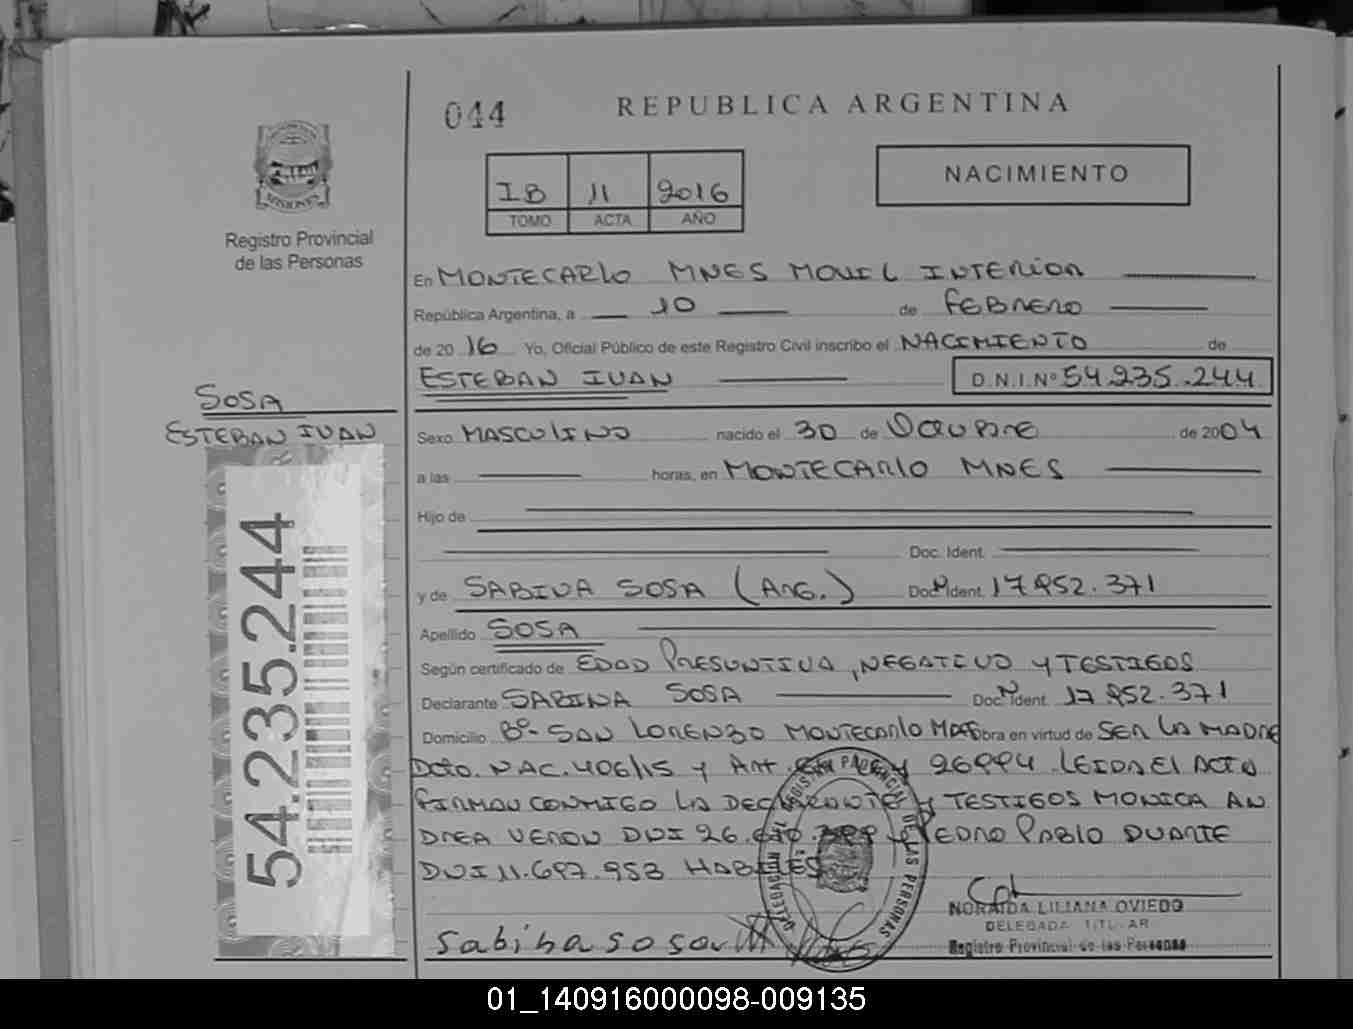 044
REPUBLICA ARGENTINA
NACIMIENTO
IB 11 2016
TOMO ACTA AÑO
MISIONES
Registro Provincial
de las Personas
En MONTECARLO MNES MOVIL INTERIOR
República Argentina, a 10 de FEBRERO
de 2016 Yo, Oficial Público de este Registro Civil inscribo el NACIMIENTO de
ESTEBAN IVAN D.N.I.Nº 54.235.244
SOSA
ESTEBAN IVAN
54.235.244
Sexo MASCULINO nacido el 30 de OCTUBRE de 2004
a las horas, en MONTECARLO MNES
Hijo de
Doc. Ident.
y de SABINA SOSA (ARG.) Doc. Ident. 17.952.371
Apellido SOSA
Según certificado de EDAD PRESUNTIVA, NEGATIVO Y TESTIGOS
Declarante SABINA SOSA Doc. Ident. 17.952.371
Domicilio Bº- SAN LORENZO MONTECARLO MNES Obra en virtud de SER LA MADRE
Dcto. NAC. 406/15 Y Art. Y 26994. LEIDA EL ACTA
FIRMAN CONMIGO LA DECLARANTE Y TESTIGOS MONICA AN
DREA VERON DNI 26. PEDRO PABLO DUARTE
DNI 11.697.953 HABILES
Sabina sosa
DELEGACION DEL REGISTRO PROVINCIAL DE LAS PERSONAS
NORAIDA LILIANA OVIEDO
DELEGADA TITULAR
Registro Provincial de las Personas
01_140916000098-009135